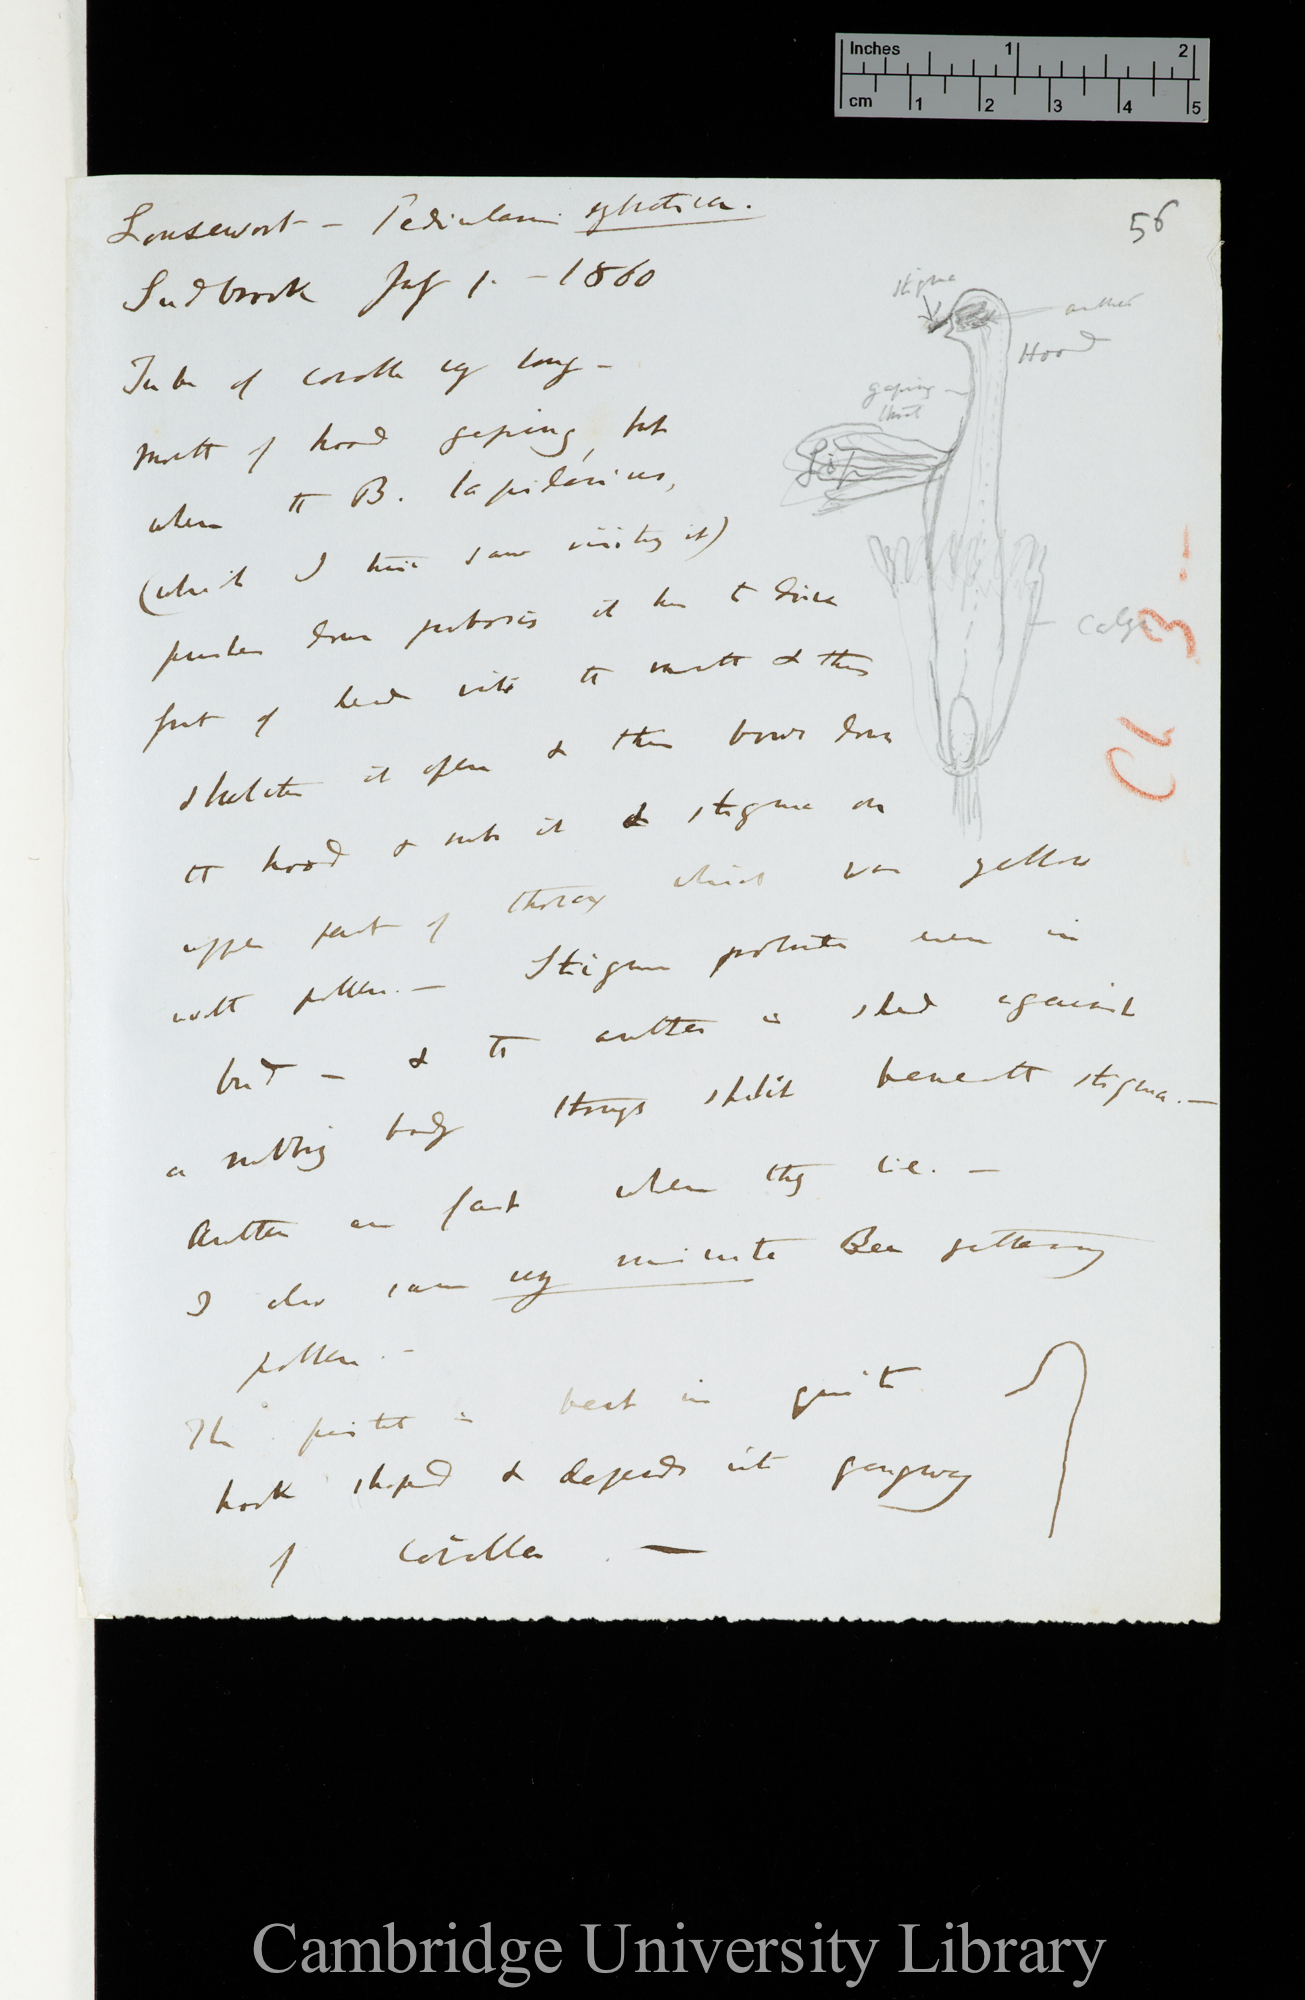 Inches 1 2
cm 1 2 3 4 5
56
Lousewort — Pedicularis sylvatica.
Sudbrook July 1. — 1860
Tube of corolla very long —
mouth of hood gaping, but
when the B. lapidarius,
(which I have saw visiting it)
pushes down proboscis it has to drive
front of head into the mouth & thus
stretches it open & then bows down
the hood & rubs it & stigma on
upper part of thorax which was yellow
with pollen. — Stigma protrudes even in
bud — & the anther is shed against
a rubbing body through splits beneath stigma. —
Anthers are fast when they lie. —
I also saw very minute Bee gathering
pollen. —
The pistil is bent in quite
hook shaped & depends into gangway
of corolla —
stigma
anther
Hood
gaping
throat
Lip
Calyx
Ch 3
Cambridge University Library